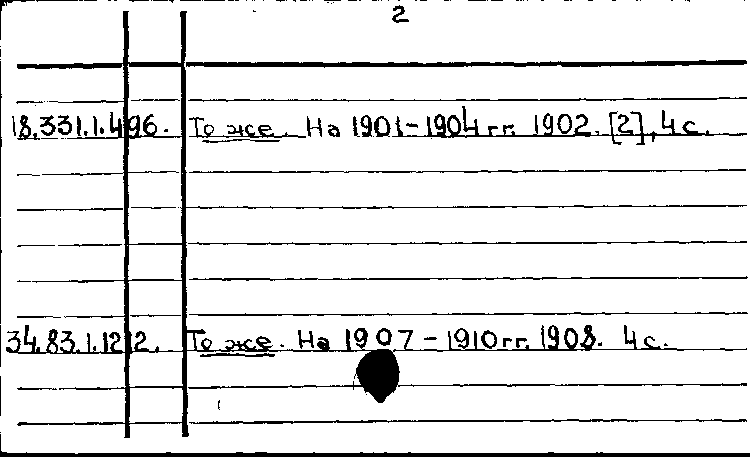 2
18.331.1.496. То же. На 1901-1904 гг. 1902. [2], 4 с.
34.83.1.1212. То же. На 1907-1910 гг. 1908. 4 с.